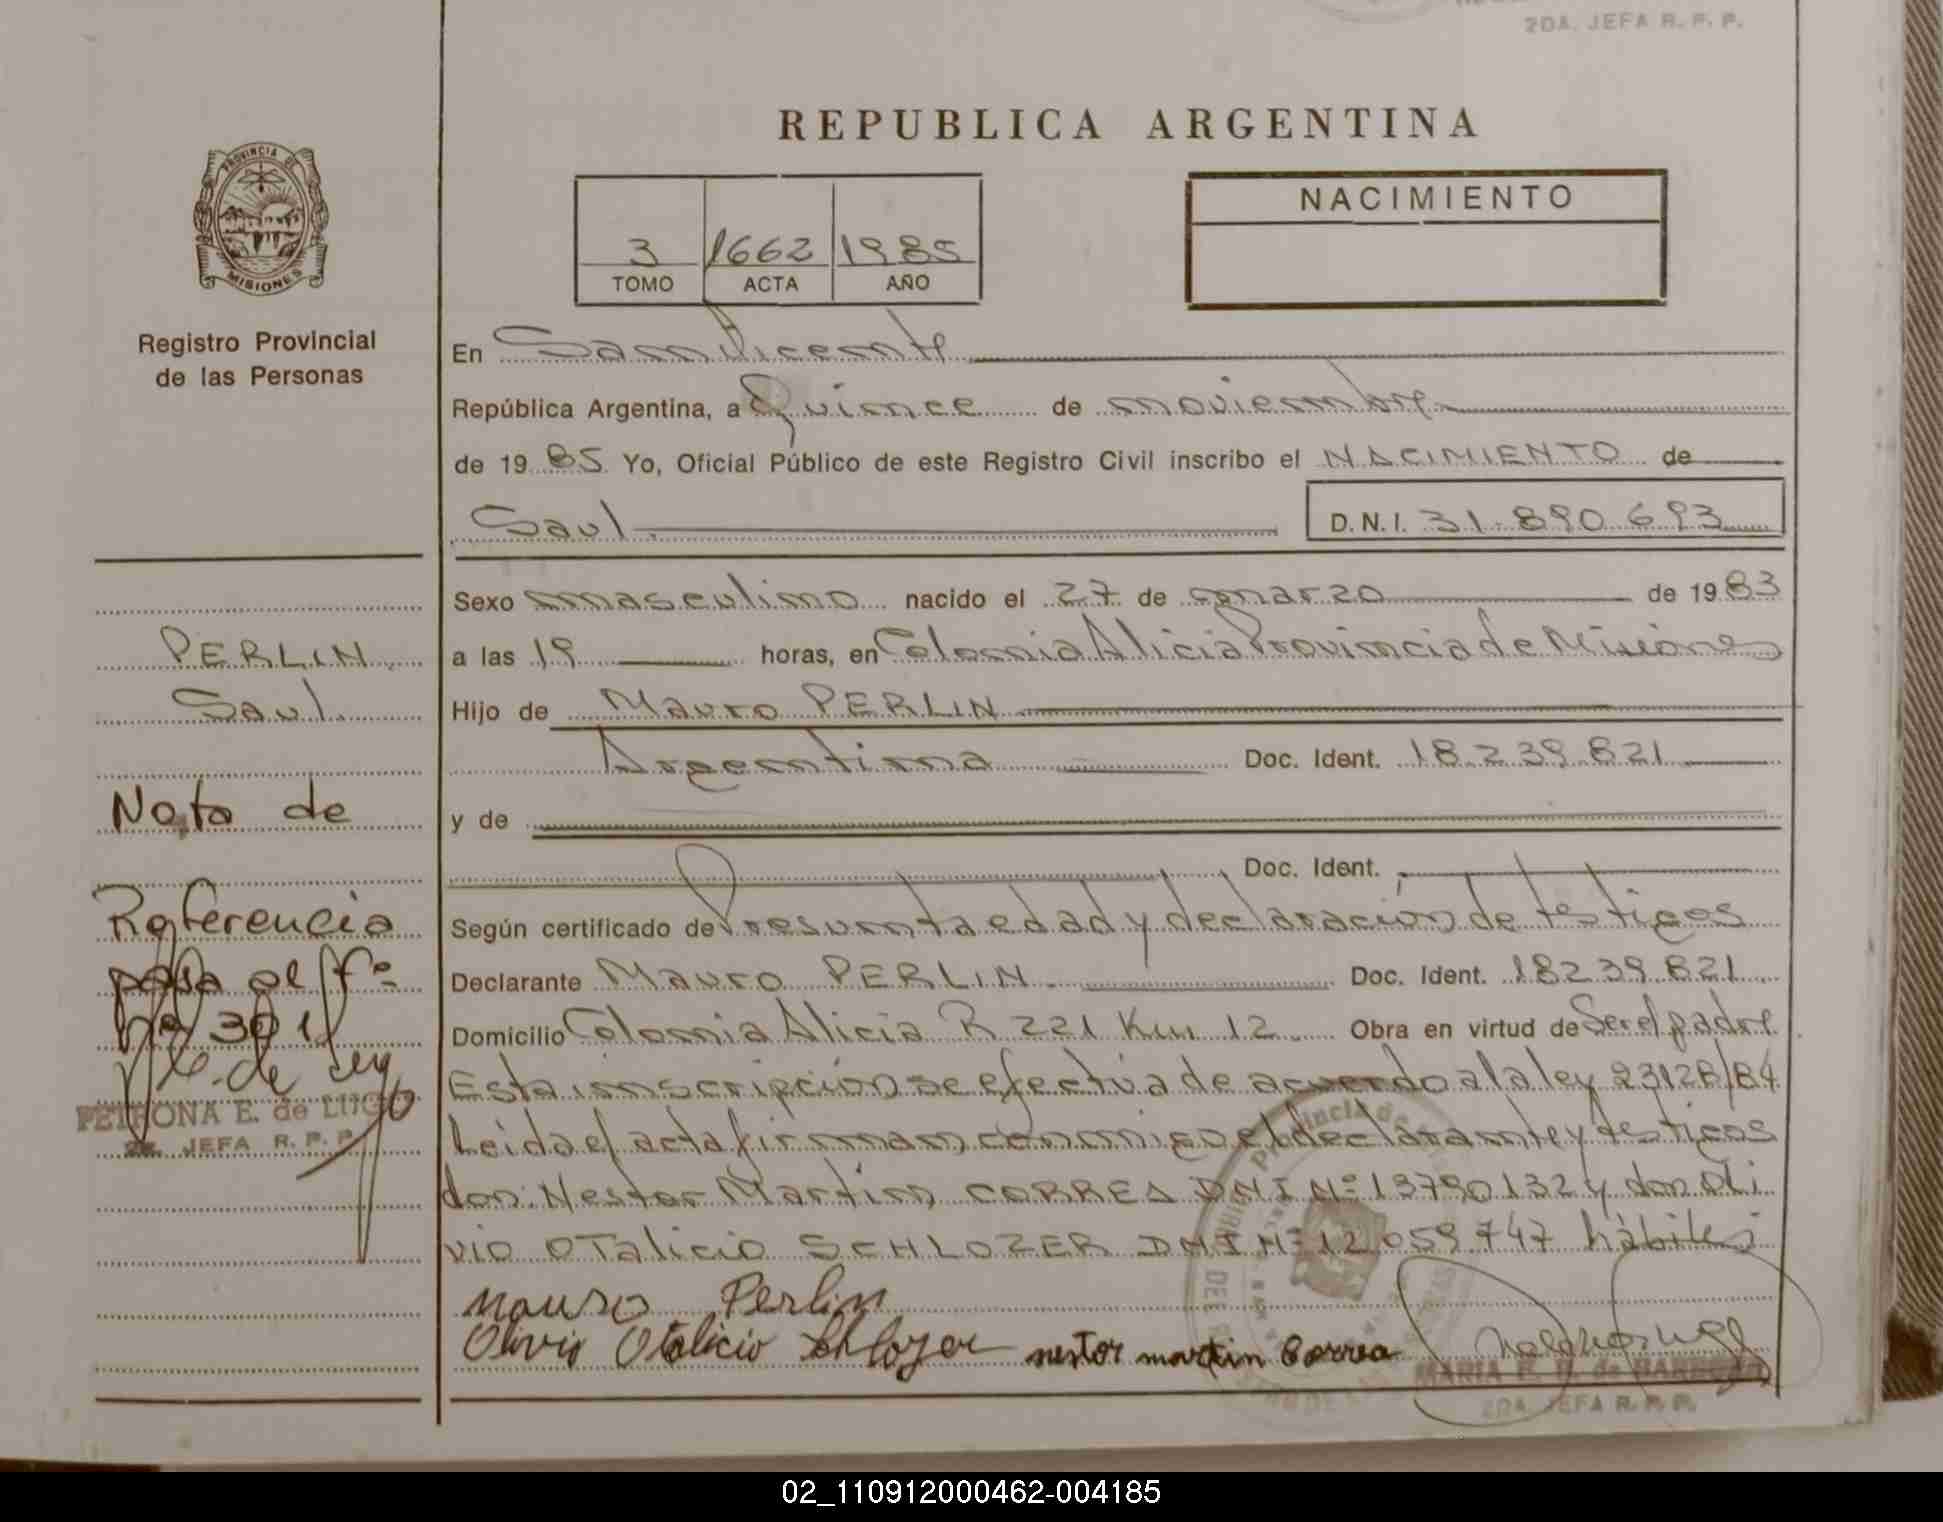 2DA. JEFA R. P. P.
REPUBLICA ARGENTINA
PROVINCIA DE
MISIONES
Registro Provincial
de las Personas
3 1662 1985
TOMO ACTA AÑO
NACIMIENTO
En San Vicente
República Argentina, a Quince de noviembre
de 1985 Yo, Oficial Público de este Registro Civil inscribo el NACIMIENTO de
Saul D.N.I. 31.890.693
Sexo masculino nacido el 27 de marzo de 1983
a las 19 horas, en Colonia Alicia Provincia de Misiones
Hijo de Mauro PERLIN
Argentina Doc. Ident. 18.239.821
y de
Doc. Ident.
Según certificado de Presunta edad y declaración de testigos
Declarante Mauro PERLIN Doc. Ident. 18239821
Domicilio Colonia Alicia R 221 Km 12 Obra en virtud de Ser el padre
Esta inscripción se efectúa de acuerdo a la ley 23128/84
Leida el acta firman conmigo el declarante y testigos
don: Nestor Martin CORREA DNI Nº 13790132 y don Oli
vio OTalicio SCHLOZER DNI Nº 12.059.747 hábiles
Mauro Perlin
Olivio Otalicio Schlozer nestor martin Correa
MARIA E. B. de
2DA. JEFA R. P. P.
PERLIN
Saul
Nota de
Referencia
pasa al fº
nº 301
PETRONA E. de LUGO
JEFA R. P. P.
02_110912000462-004185